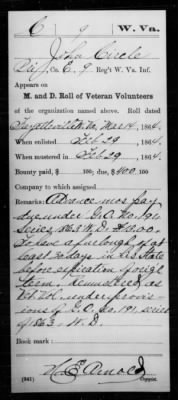 C | 9 | W. Va.
John Circle
Pvt, Co. C, 9 Reg't W. Va. Inf.
Appears on
M. and D. Roll of Veteran Volunteers
of the organization named above. Roll dated
Fayetteville W. Va., Mar 14, 1864.
When enlisted Feb 29, 1864.
When mustered in Feb 29, 1864.
Bounty paid $ 100; due, $ 400.100
Company to which assigned
Remarks: Advance mos pay
due under G.O. No. 191
series 1863 W.D. $13.00.
To have a furlough of at
least 30 days in his State
before expiration of orig'l
term. Remustered as
Vet Vol. under provis-
ions of G.O. No. 191, series
of 1863. W.D.
Book mark:
Arnold
(941) Copyist.